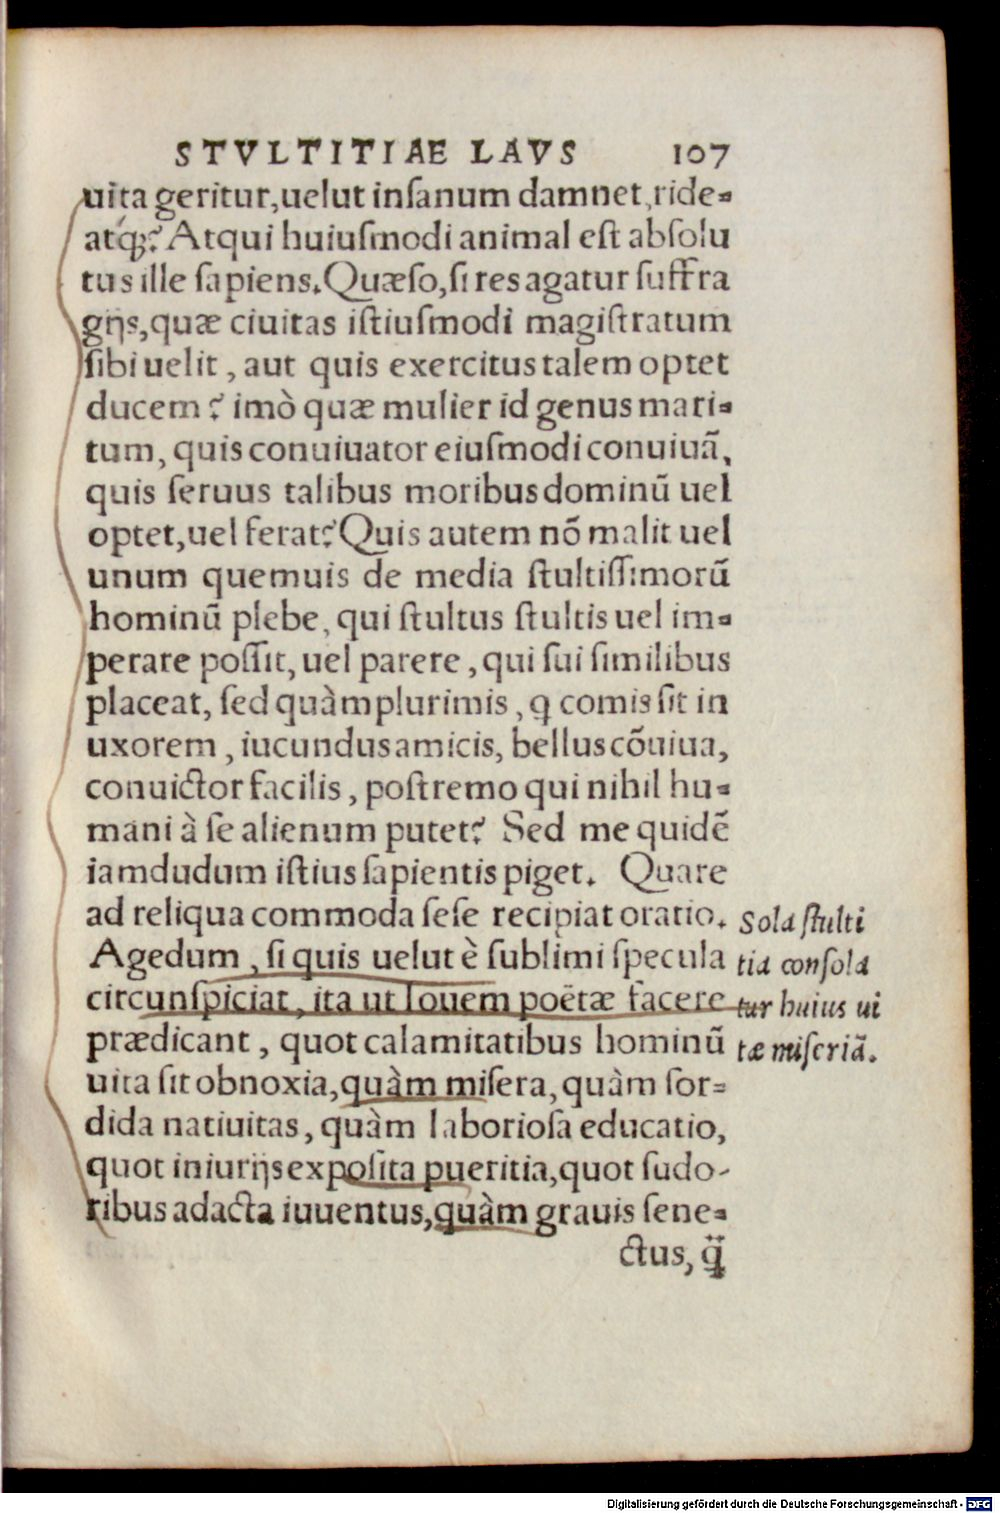 STVLTITIAE LAVS 107
uita geritur,uelut inſanum damnet,ride-
atq́;? Atqui huiuſmodi animal eſt abſolu
tus ille ſapiens. Quæſo,ſi res agatur ſuffra
gijs,quæ ciuitas iſtiuſmodi magiſtratum
ſibi uelit, aut quis exercitus talem optet
ducem? imò quæ mulier id genus mari-
tum, quis conuiuator eiuſmodi conuiuã,
quis ſeruus talibus moribus dominũ uel
optet,uel ferat? Quis autem nõ malit uel
unum quemuis de media ſtultiſſimorũ
hominũ plebe, qui ſtultus ſtultis uel im-
perare poſſit, uel parere, qui ſui ſimilibus
placeat, ſed quàm plurimis, ꝗ comis ſit in
uxorem, iucundus amicis, bellus cõuiua,
conuictor facilis, poſtremo qui nihil hu-
mani à ſe alienum putet? Sed me quidẽ
iamdudum iſtius ſapientis piget. Quare
ad reliqua commoda ſeſe recipiat oratio.
Agedum, ſi quis uelut è ſublimi ſpecula
circunſpiciat, ita ut Iouem poëtæ facere
prædicant, quot calamitatibus hominũ
uita ſit obnoxia,quàm miſera, quàm ſor-
dida natiuitas, quàm laborioſa educatio,
quot iniurijs expoſita pueritia,quot ſudo-
ribus adacta iuuentus,quàm grauis ſene-
ctus, q̃
Sola ſtulti
tia conſola
tur huius ui
tæ miſeriã.
Digitalisierung gefördert durch die Deutsche Forschungsgemeinschaft - DFG